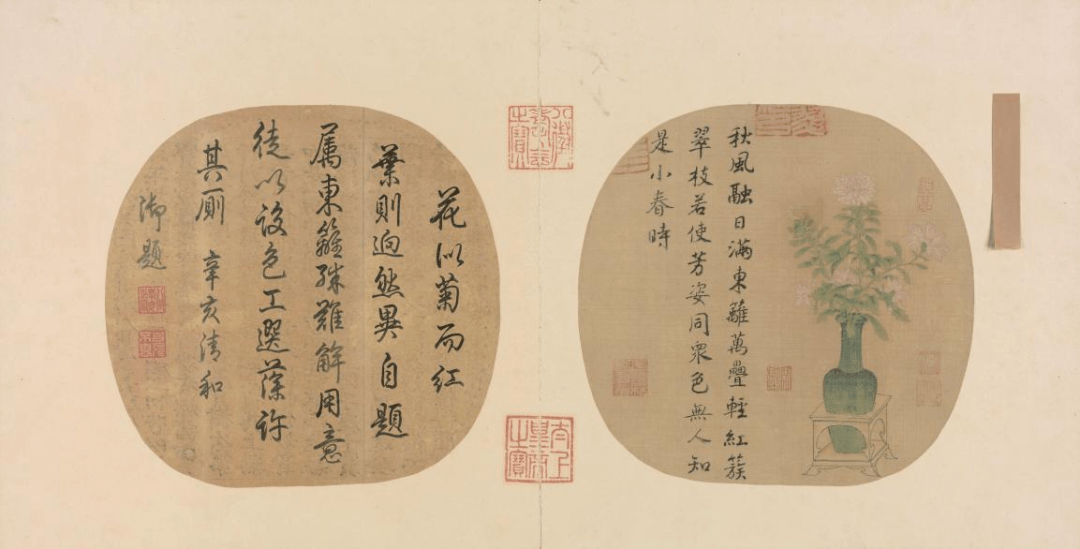 秋風融日滿東籬萬疊輕紅簇
翠枝若使芳姿同衆色無人知
是小春時
八徵耄念之寶
太上皇帝之寶
花似菊而紅
葉則迥然異自題
屬東籬殊難解用意
徒以設色工選藻許
其厠 辛亥清和
御題